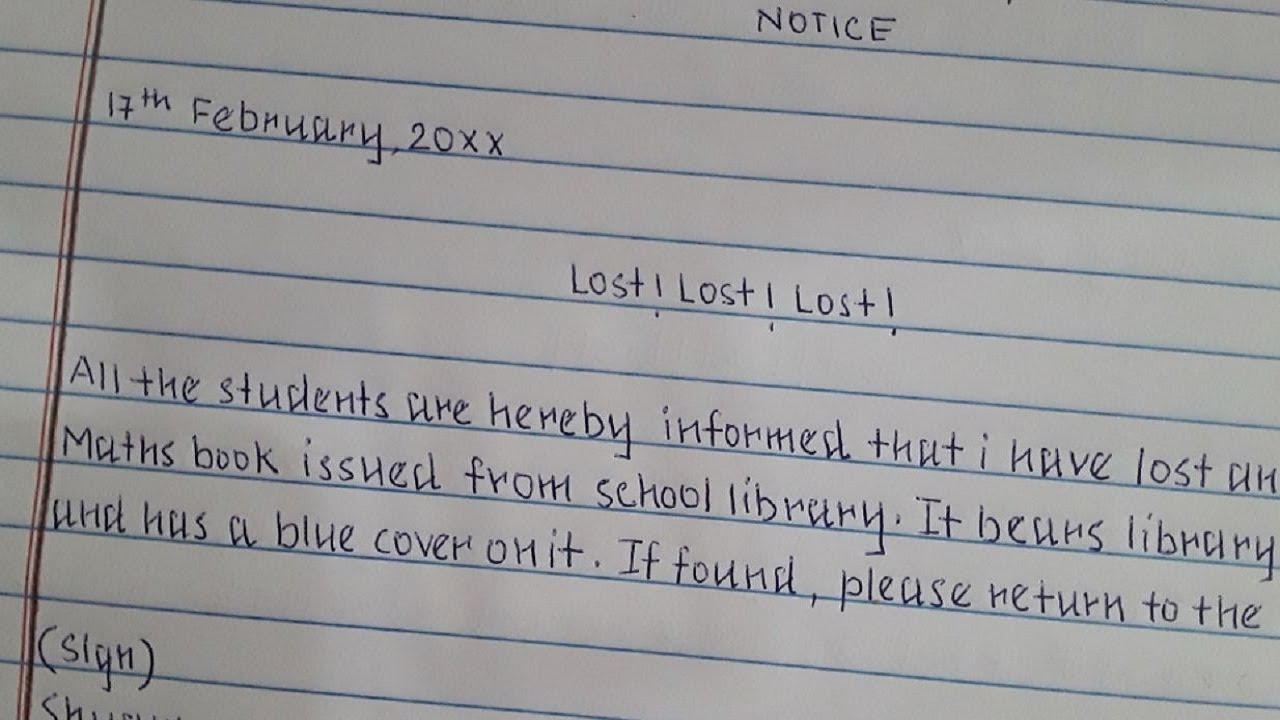 NOTICE
17th February, 20xx
Lost! Lost! Lost!
All the students are hereby informed that i have lost an
Maths book issued from school library. It bears library
and has a blue cover on it. If found, please return to the
(Sign)